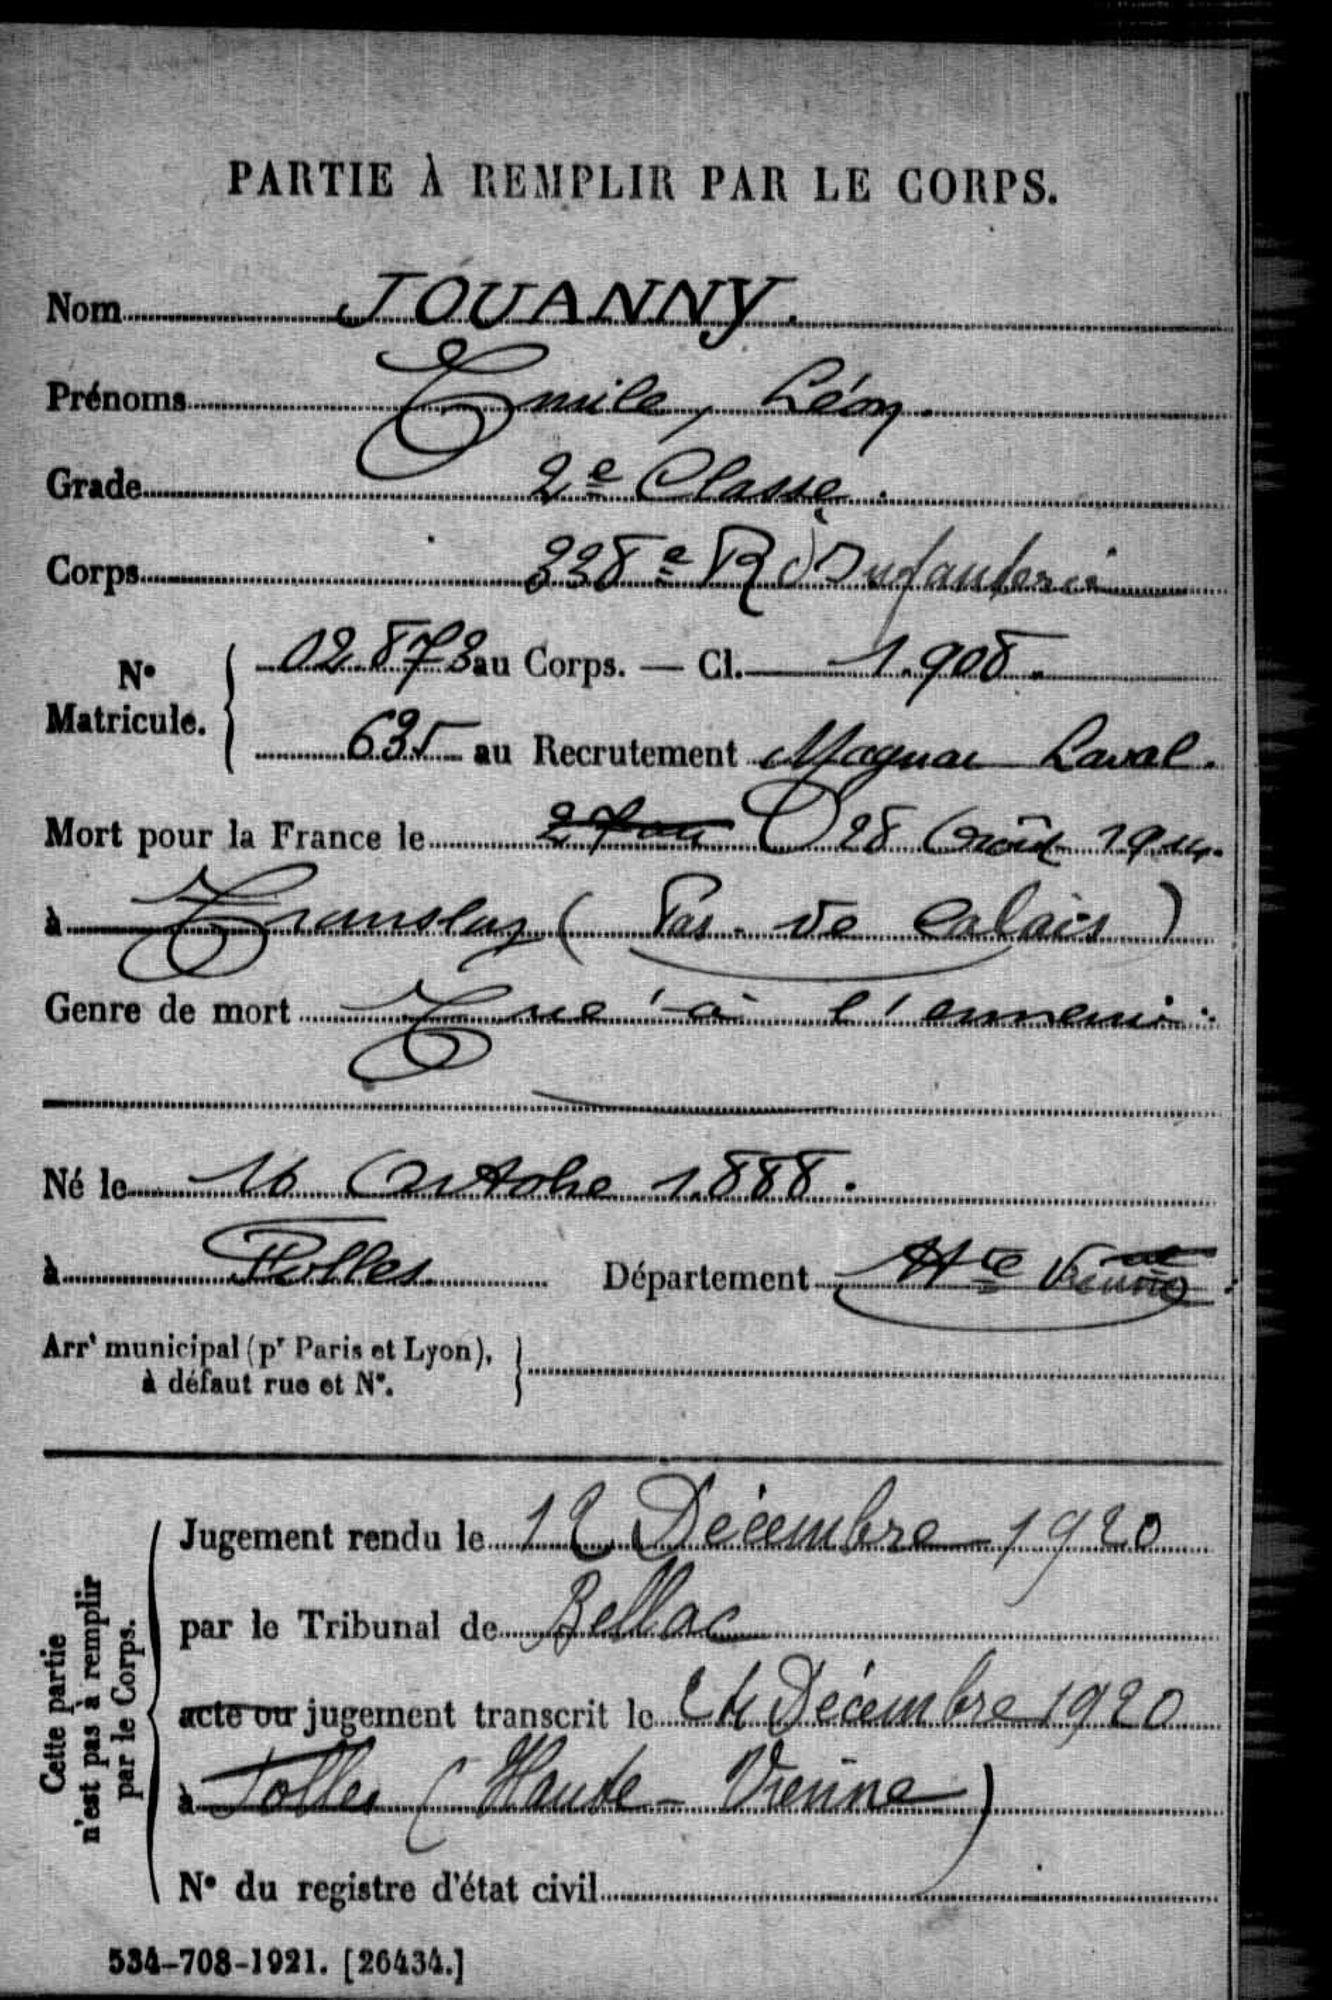 PARTIE À REMPLIR PAR LE CORPS.
Nom JOUANNY.
Prénoms Emile, Léon.
Grade 2e Classe.
Corps 338e R d'Infanterie
No Matricule. 02873 au Corps. — Cl. 1.908.
635 au Recrutement Magnac Laval.
Mort pour la France le 28 Août 1914.
à Transloy (Pas-de Calais)
Genre de mort Tué à l'ennemi.
Né le 16 Octobre 1.888.
à Folles Département Hte Vienne
Arrt municipal (pr Paris et Lyon),
à défaut rue et No.
Cette partie
n'est pas à remplir
par le Corps.
Jugement rendu le 12 Décembre 1920
par le Tribunal de Bellac
acte ou jugement transcrit le 24 Décembre 1920
à Folles (Haute-Vienne)
No du registre d'état civil
534-708-1921. [26434.]